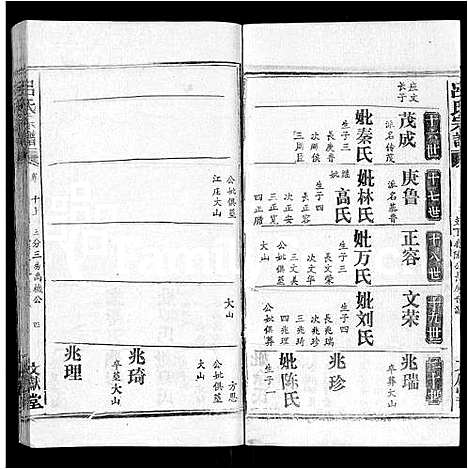 呂氏宗譜
十六世
十七世
十八世
十九世
庄文
长子
茂成
派名传茂
妣秦氏
生子三
长
次周
三周臣
庚鲁
派名基鲁
妣林氏
高氏
生子四
次正安
三正宸
四正
正容
妣万氏
生子三
长文荣
次文华
三文美
公妣俱墓
大山
文荣
妣刘氏
生子四
长兆瑞
次兆珍
三兆琦
四兆理
公妣俱葬
大山
兆瑞
卒葬大山
兆珍
妣陈氏
生子一
方思
公妣俱墓
大山
兆琦
卒墓大山
兆理
公妣俱墓
江庄大山
大山
呂氏宗譜
三分三易禹檄公
四
文献堂